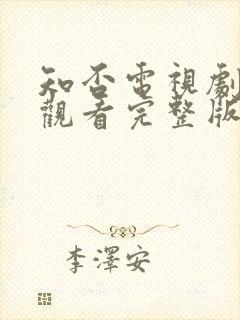 知否電視劇
觀看完整版
李澤安